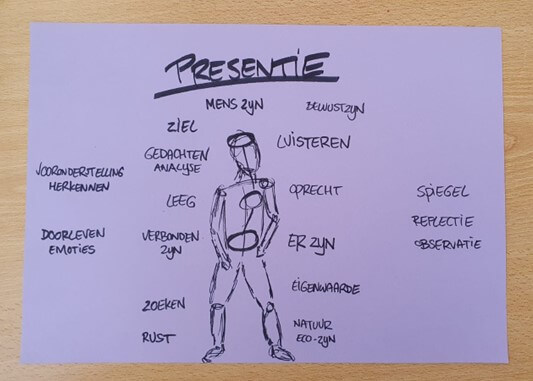 PRESENTIE
MENS ZYN
BEWUSTZYN
ZIEL
LUISTEREN
GEDACHTEN
ANALYSE
VOORONDERSTELLING
HERKENNEN
LEEG
OPRECHT
SPIEGEL
REFLECTIE
OBSERVATIE
DOORLEVEN
EMOTIES
VERBONDEN
ZYN
ER ZYN
EIGENWAARDE
ZOEKEN
RUST
NATUUR
ECO-ZYN